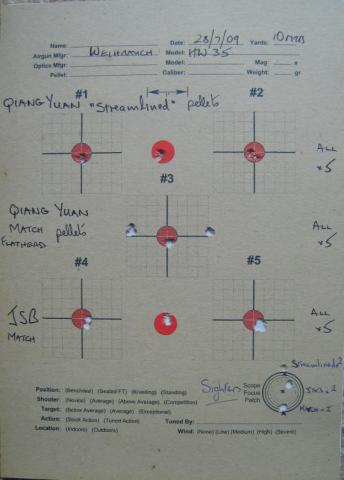 Name: Date: 28/7/09 Yards: 10 MTRS
Airgun Mfgr: WEIHRAUCH Model: HW 35
Optics Mfgr: Model: Mag: x
Pellet: Caliber: Weight: gr
#1 #2
QIANG YUAN "Streamlined" pellets
ALL x5
#3
QIANG YUAN MATCH FLATHEAD pellets
ALL x5
#4 #5
JSB MATCH
ALL x5
Streamlined
Position: (Benchrest) (Seated/FT) (Kneeling) (Standing)
Shooter: (Novice) (Average) (Above Average) (Competition)
Target: (Below Average) (Average) (Exceptional)
Action: (Stock Action) (Tuned Action) Tuned By:
Location: (Indoors) (Outdoors) Wind: (None) (Low) (Medium) (High) (Severe)
Sighters
Scope
Focus
Patch